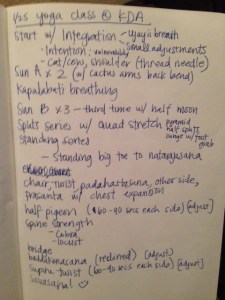 1/25 yoga class @ KDA
Start w/ Integration - ujayii breath
- Intention: vulnerability small adjustments
- Cat/cow, shoulder (thread needle)
Sun A x 2 (w/ cactus arms back bend)
Kapalabati breathing
Sun B x3 - third time w/ half moon
Splits series w/ quad stretch
pyramid
half splits
lunge w/ foot
grab
Standing series
- Standing big toe to natarajasana
chair, twist, padahastasana, other side,
prasarita w/ chest expansion
half pigeon (60-90 secs each side) [adjust]
Spine strength
- Cobra
- locust
bridge
baddhakonasana (reclined) (adjust)
Supine twist (60-90 secs each side) [adjust]
Savasana! ☺